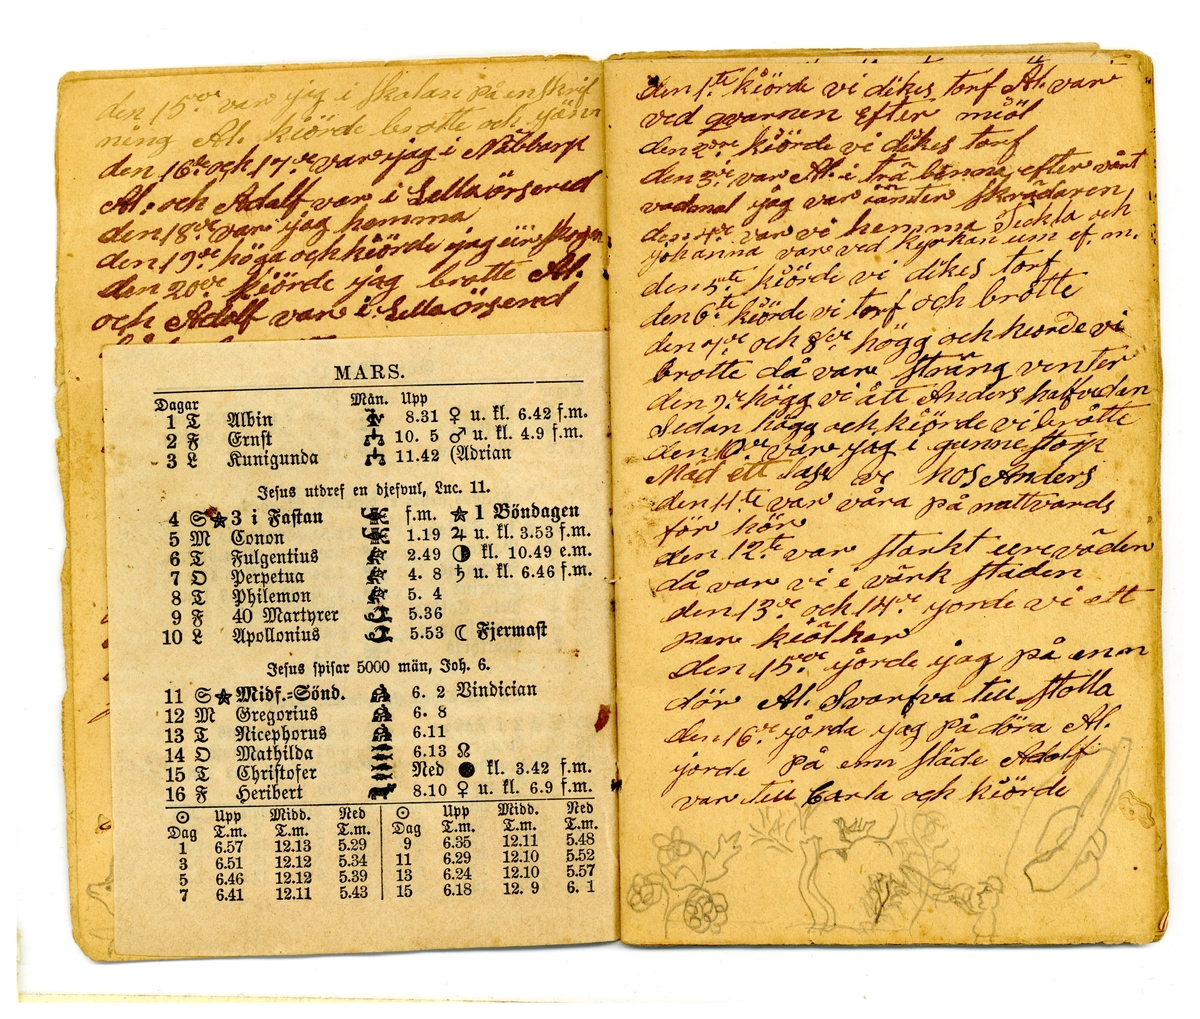 den 15de var jag i skolan på en skrif
ning Al. kiörde brotte och
den 16de och 17de var jag i Näbbarp
Al. och Adolf var i Lella örsered
den 18de var jag hemma
den 19de högg och kiörde jag ur skogen
den 20de kiörde jag brotte Al.
och Adolf var i Lella örsered
MARS.
Dagar Mån. Upp
1 T Albin 8.31 ♀ u. kl. 6.42 f.m.
2 F Ernst 10. 5 ♂ u. kl. 4.9 f.m.
3 L Kunigunda 11.42 (Adrian
Jesus utdref en djefvul, Luc. 11.
4 S ★ 3 i Fastan f.m. ★ 1 Böndagen
5 M Conon 1.19 ♃ u. kl. 3.53 f.m.
6 T Fulgentius 2.49 ◑ kl. 10.49 e.m.
7 O Perpetua 4. 8 ♄ u. kl. 6.46 f.m.
8 T Philemon 5. 4
9 F 40 Martyrer 5.36
10 L Apollonius 5.53 ☾ Fjermast
Jesus spisar 5000 män, Joh. 6.
11 S ★ Midf.=Sönd. 6. 2 Vindician
12 M Gregorius 6. 8
13 T Nicephorus 6.11
14 O Mathilda 6.13 ☊
15 T Christofer Ned ● kl. 3.42 f.m.
16 F Heribert 8.10 ♀ u. kl. 6.9 f.m.
☉ Upp Midd. Ned ☉ Upp Midd. Ned
Dag T.m. T.m. T.m. Dag T.m. T.m. T.m.
1 6.57 12.13 5.29 9 6.35 12.11 5.48
3 6.51 12.12 5.34 11 6.29 12.10 5.52
5 6.46 12.12 5.39 13 6.24 12.10 5.57
7 6.41 12.11 5.43 15 6.18 12. 9 6. 1
den 1ste kiörde vi dikes torf Al. var
ved qvarnen efter miöl
den 2dre kiörde vi dikes torf
den 3de var Al. i trä binna efter vårt
vadmal jag var äänter skräderen
den 4de var vi hemma Teckla och
johanna var ved kyrkan um ef. m.
den 5te kiörde vi dikes torf
den 6te kiörde vi torf och brotte
den 7de och 8de högg och kiorde vi
brotte då var sträng venter
den 9de högg vi ått Anders halfva dan
Sedan högg och kiörde vi brötte
den 10de var jag i gunnestorp
Mäd ett lass vi hos Anders
den 11te var våra på nattvards
för hör
den 12te var starkt ure väder
då var vi e värk staden
den 13de och 14de yorde vi ett
par kiälkar
den 15de yörde jag på enn
dör Al. Svarfva till stolla
den 16de yörda jag på döra Al.
yorde på enn släde Adolf
var till Carla och kiörde